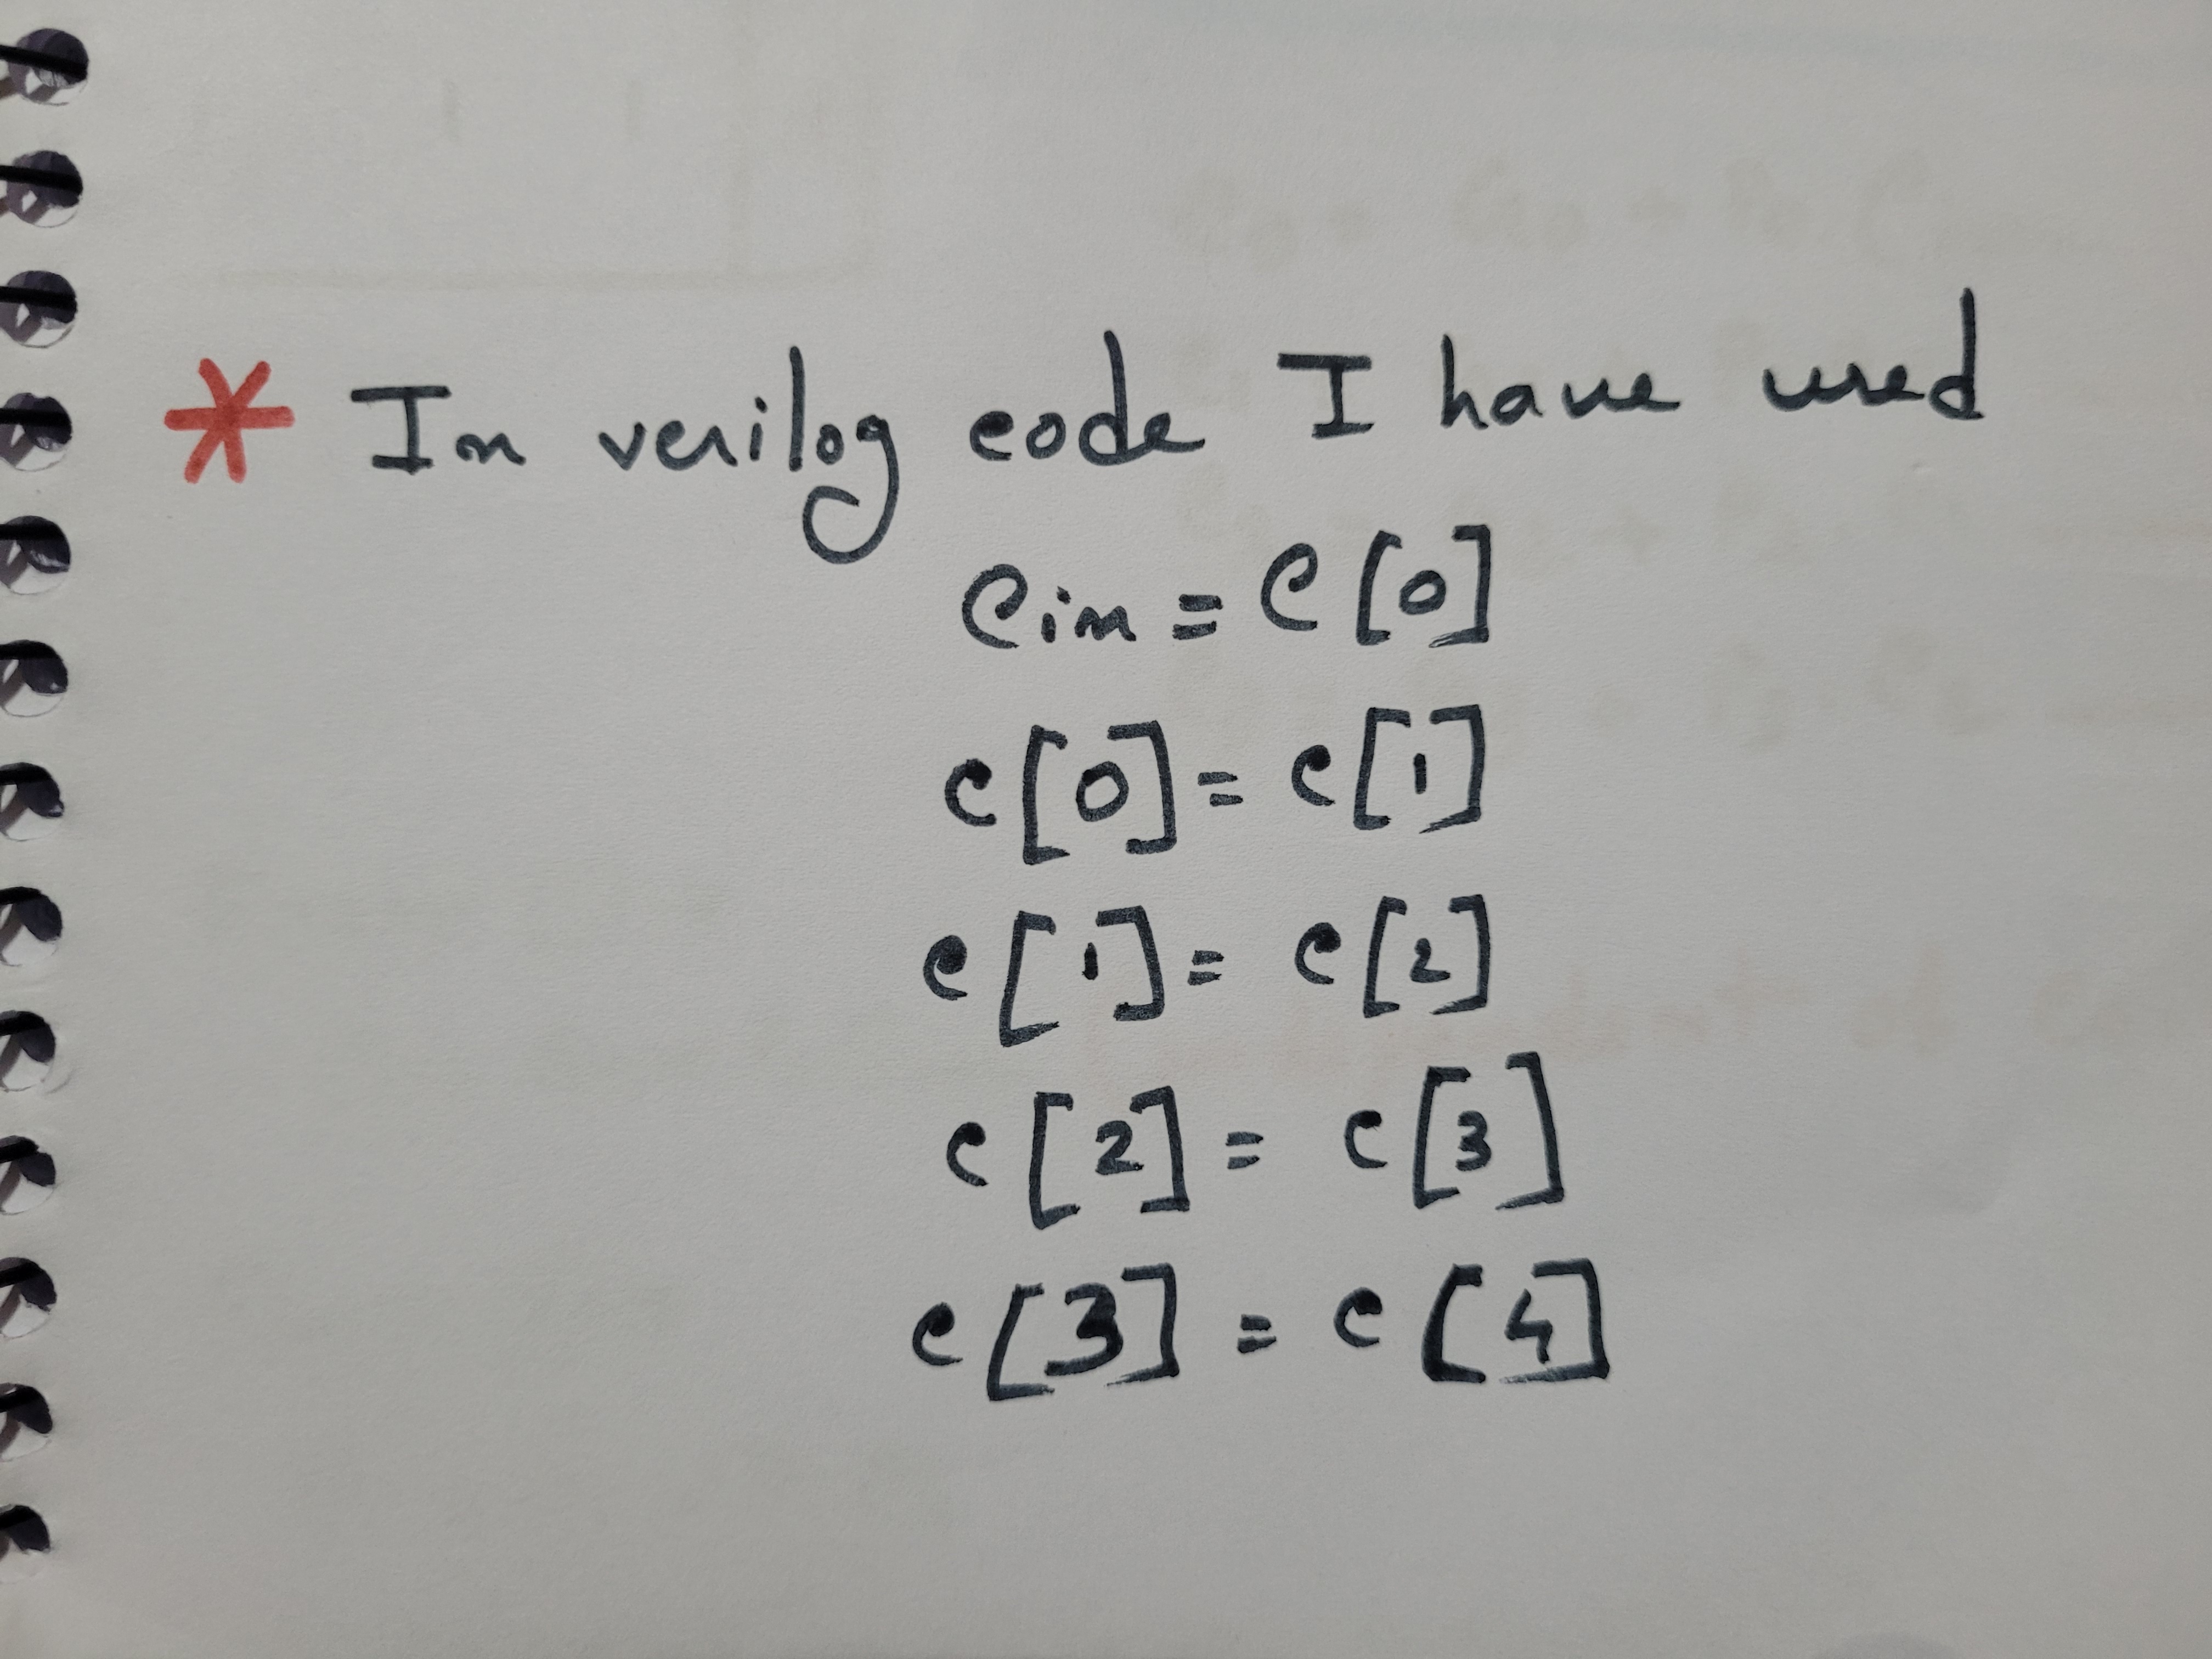 * In verilog code I have used
Cin = C[0]
c[0] = c[1]
c[1] = c[2]
c[2] = c[3]
c[3] = c[4]